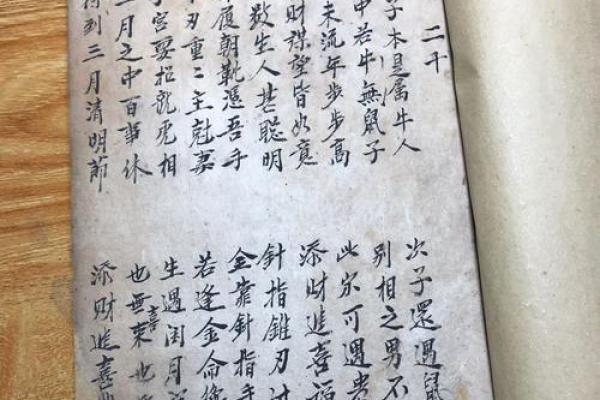 二十
子本是属牛人
中若牛無鼠子
未流年步步高
財謀望皆如意
数生人甚聰明
履朝靴憑吾手
刃重二主尅妻
宮要招就虎相
二月之中百事休
得到三月清明節
次子還遇鼠
別相之男不
此宗可遇貴
添财進喜福
針指錐刃
金靠針指手
若逢金命
生遇闰月
也無喜来也
添财進喜